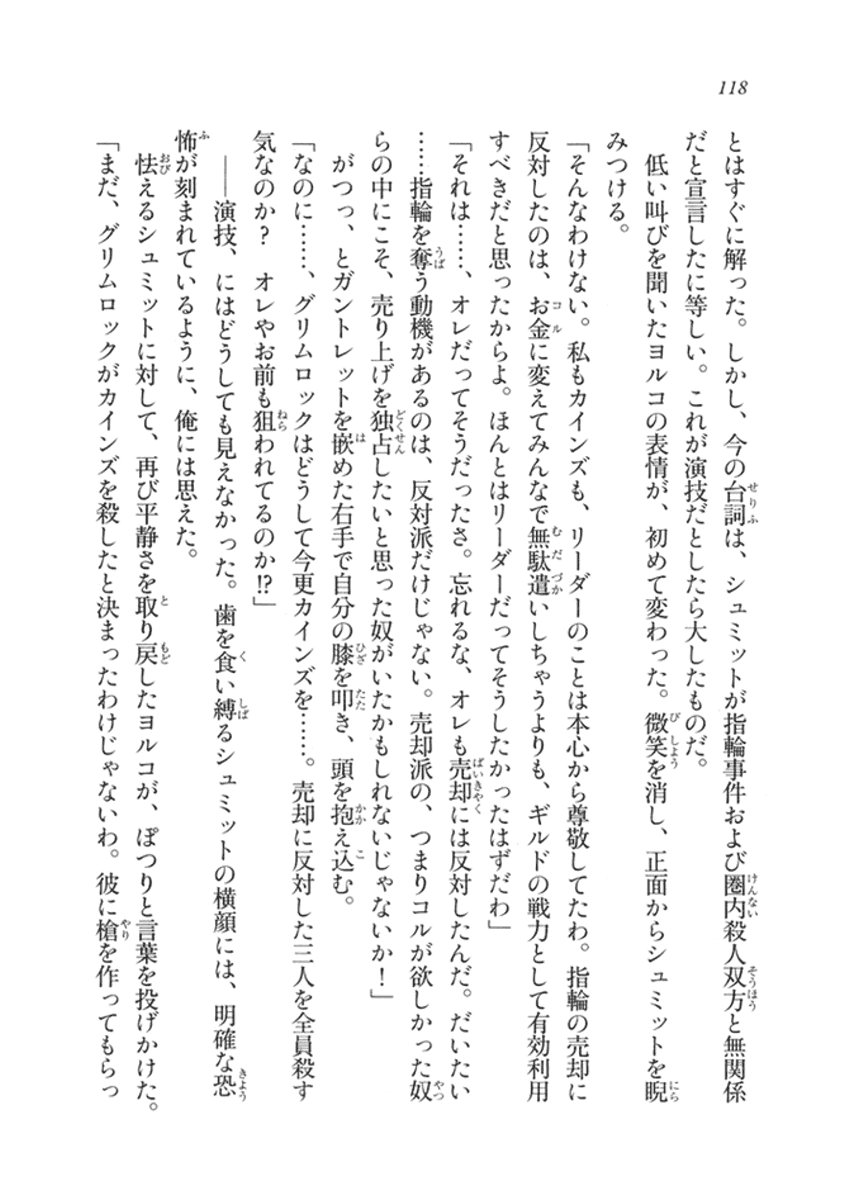 118
とはすぐに解った。しかし、今の台詞は、シュミットが指輪事件および圏内殺人双方と無関係
だと宣言したに等しい。これが演技だとしたら大したものだ。
低い叫びを聞いたヨルコの表情が、初めて変わった。微笑を消し、正面からシュミットを睨
みつける。
「そんなわけない。私もカインズも、リーダーのことは本心から尊敬してたわ。指輪の売却に
反対したのは、お金に変えてみんなで無駄遣いしちゃうよりも、ギルドの戦力として有効利用
すべきだと思ったからよ。ほんとはリーダーだってそうしたかったはずだわ」
「それは……、オレだってそうだったさ。忘れるな、オレも売却には反対したんだ。だいたい
……指輪を奪う動機があるのは、反対派だけじゃない。売却派の、つまりコルが欲しかった奴
らの中にこそ、売り上げを独占したいと思った奴がいたかもしれないじゃないか！」
がつっ、とガントレットを嵌めた右手で自分の膝を叩き、頭を抱え込む。
「なのに……、グリムロックはどうして今更カインズを……。売却に反対した三人を全員殺す
気なのか？　オレやお前も狙われてるのか!?」
――演技、にはどうしても見えなかった。歯を食い縛るシュミットの横顔には、明確な恐
怖が刻まれているように、俺には思えた。
怯えるシュミットに対して、再び平静さを取り戻したヨルコが、ぽつりと言葉を投げかけた。
「まだ、グリムロックがカインズを殺したと決まったわけじゃないわ。彼に槍を作ってもらっ